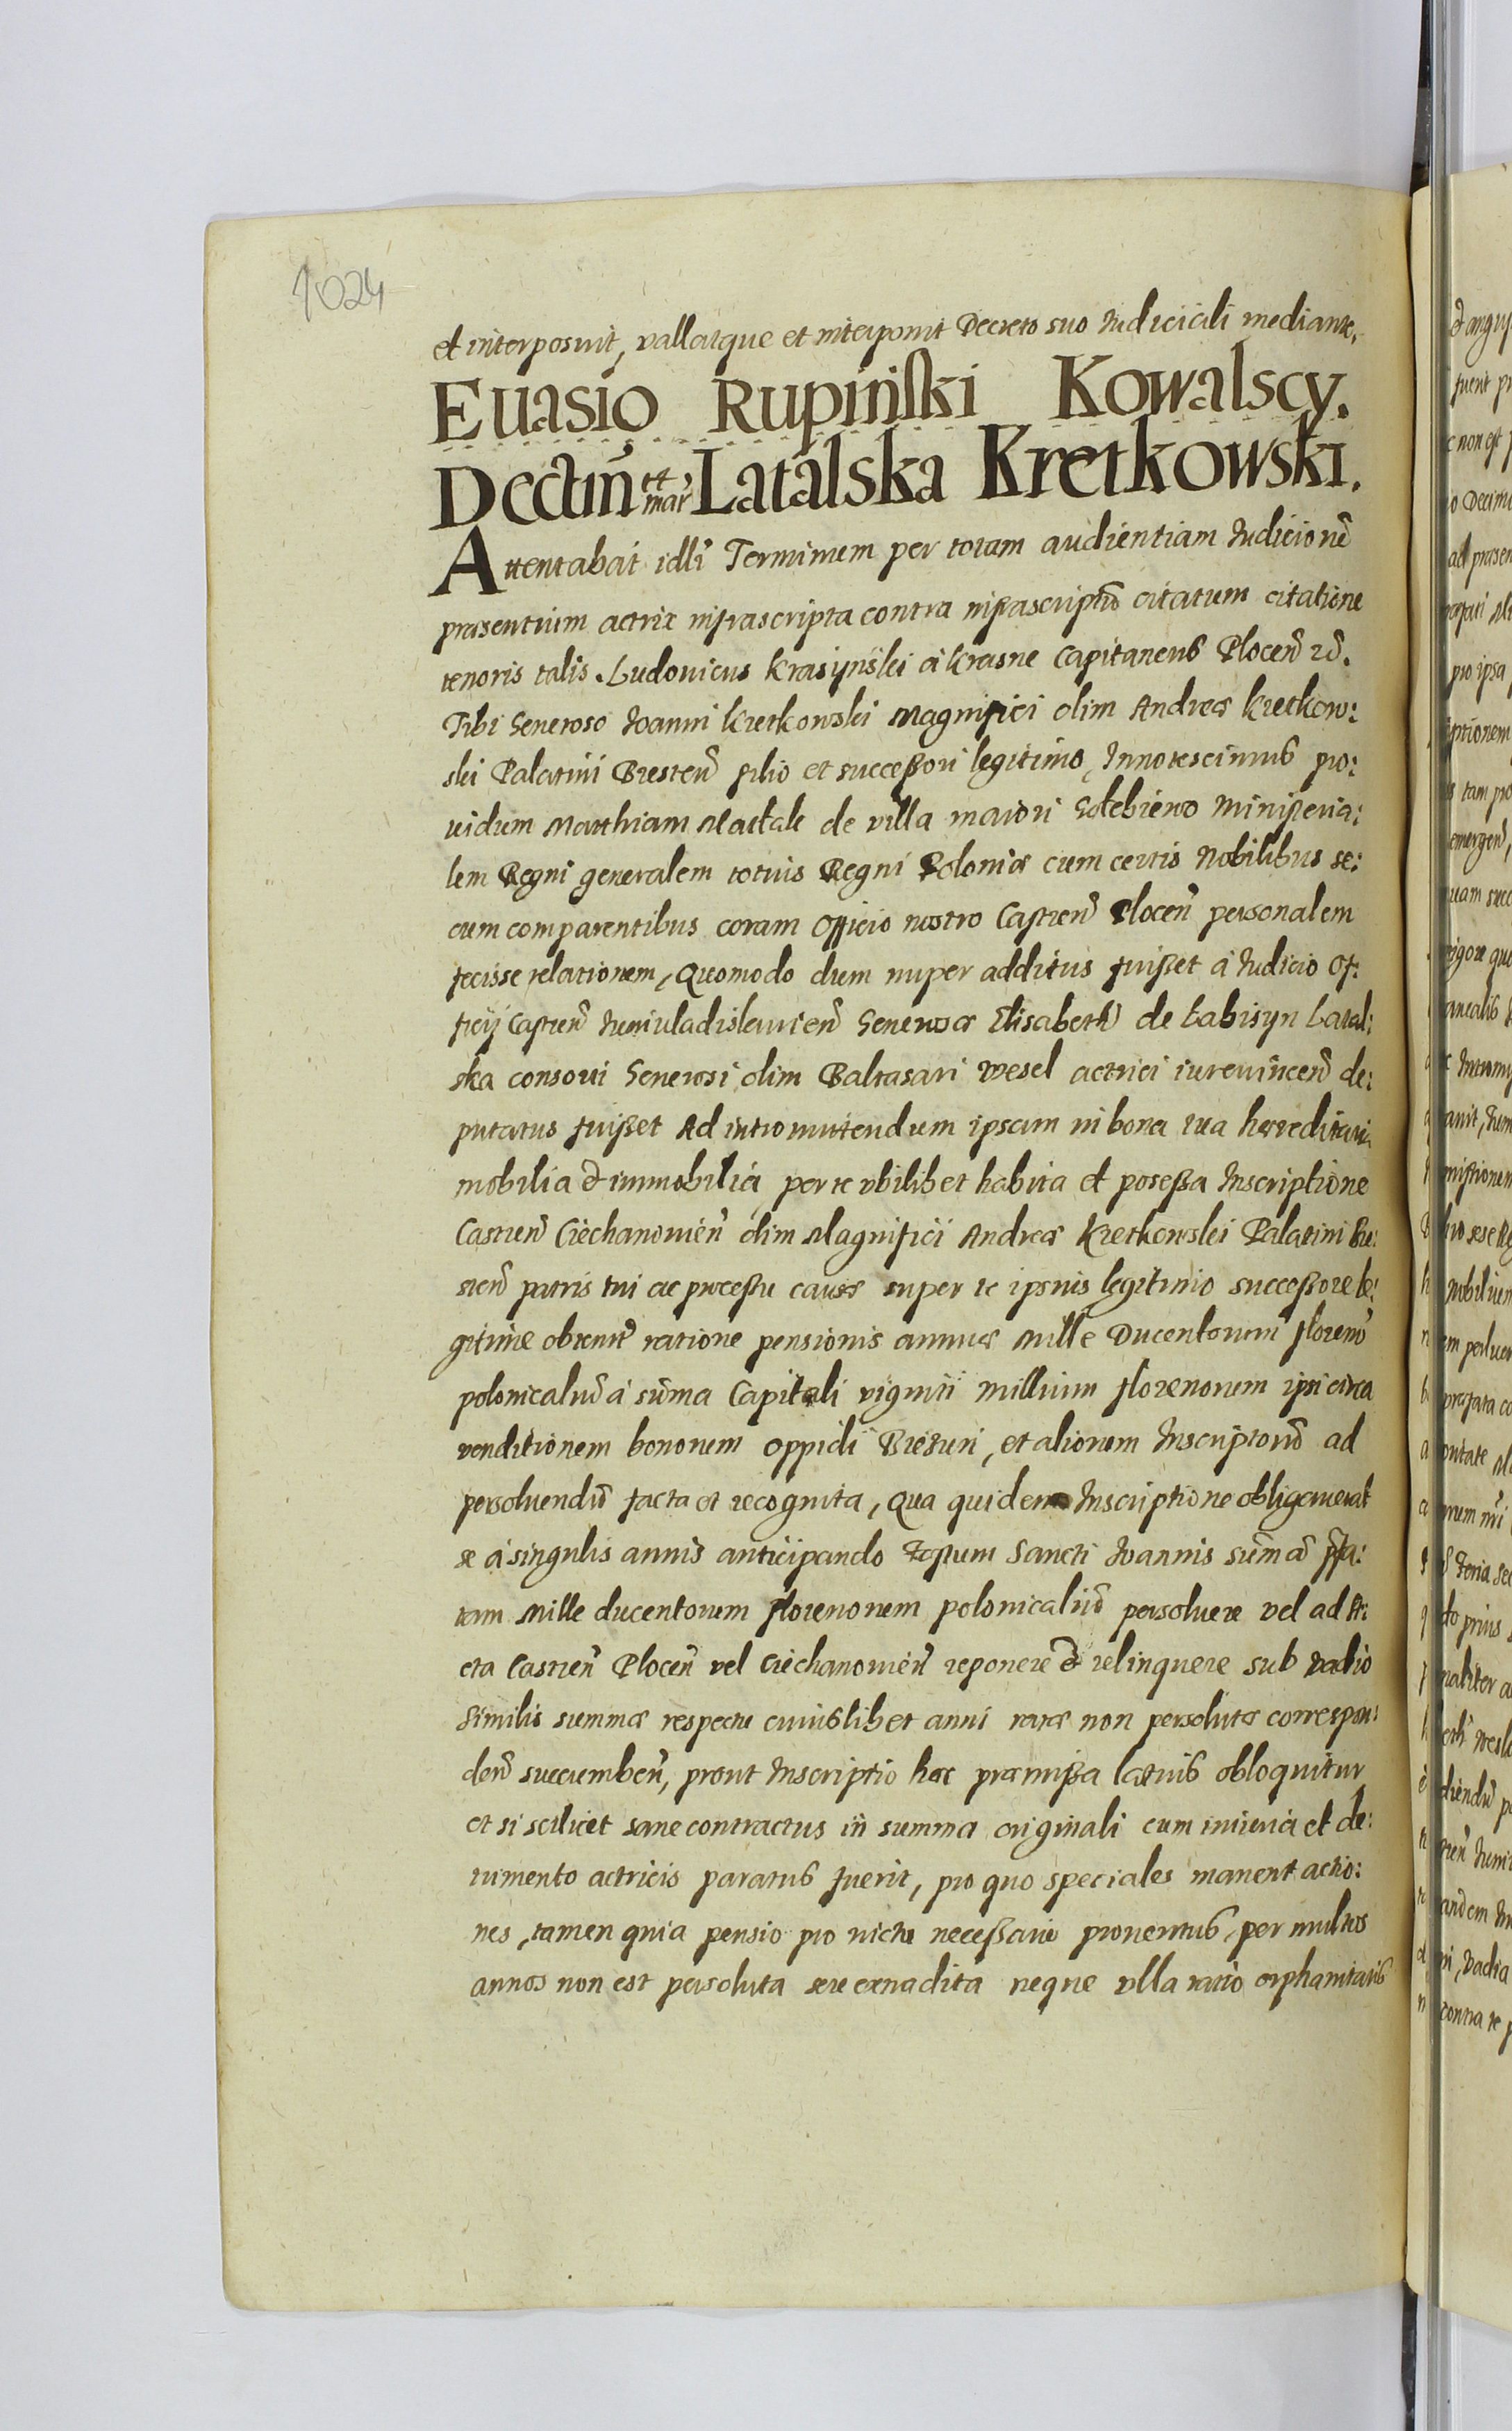 1024
et interposuit, vallatque et interponit Decreto suo Iudiciali mediante.
Euasio Rupinski Kowalscy.
Dectm̃ et mar̃ Latalska Kretkowski.
Attentabat idlĩ Terminum per totam audientiam Iudicionẽ
præsentium actrix infrascripta contra infrascriptũ citatum citatione
tenoris talis. Ludovicus Krasynski à Krasne Capitaneus Plocen̄
Tibi Generoso Ioanni Kretkowski Magnifici olim Andreæ Kretkow:
ski Palatini Bresten̄ filio et successori legitimo, Innotescimus pro:
uidum Matthiam Mactak de villa maiori Gołebiewo Ministeria:
lem Regni generalem totius Regni Poloniæ cum certis Nobilibus se:
cum comparentibus coram Officio nostro Castren̄ Plocen̄ personalem
fecisse relationem, Quomodo dum nuper additus fuisset à Iudicio Of:
ficij Castren̄ Iuniuladislauien̄ Generosæ Elisabeth de Łabisyn Latal:
ska consorti Generosi olim Baltasari Wesel actrici iureuincen̄ de:
putatus fuisset Ad intromittendum ipsam in bona tua hæreditaria
mobilia & immobilia per te vbilibet habita et posessa Inscriptione
Castren̄ Ciechanouien̄ olim Magnifici Andreæ Kretkowski Palatini Bre:
sten̄ patris tui ac processu causæ super te ipsius legitimo successore le:
gitime obtent̃ ratione pensionis annuæ Mille Ducentorum florenõ
polonicaliũ à sũma Capitali viginti millium florenorum ipsi circa
venditionem bonorum oppidi Bieżuń, et aliorum Inscriptorũ ad
persoluendũ facta et recognita, Qua quidem Inscriptione obligauerat
se à singulis annis anticipando Festum Sancti Ioannis sũmã pfa:
tam Mille ducentorum florenorum polonicaliũ persoluere vel ad A:
cta Castren̄ Plocen̄ vel Ciechanouien̄ reponere & relinquere sub vadio
similis summæ respectu cuiuslibet anni ratæ non persolutæ correspon:
den̄ succumben̄, prout Inscriptio hæc præmissa latius obloquitur
et si scilicet sane contractus in summa originali cum iniuria et de:
trimento actricis paratus fuerit, pro quo speciales manent actio:
nes, tamen quia pensio pro victu necessario prouentus, per multos
annos non est persoluta sere extradita neque vlla ratio orphanitatis